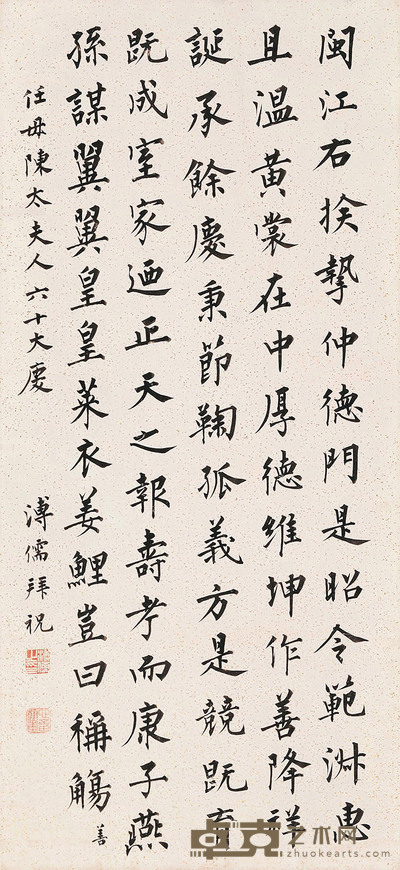 閩江右族摯仲德門是昭令範淑惠
且溫黃裳在中厚德維坤作善降祥
誕承餘慶秉節鞠孤義方是競既育
既成室家迺正天之報壽考而康子燕
孫謀翼翼皇皇萊衣姜鯉豈曰稱觴 善
任母陳太夫人六十大慶
溥儒拜祝
卓克艺术网
zhuokearts.com